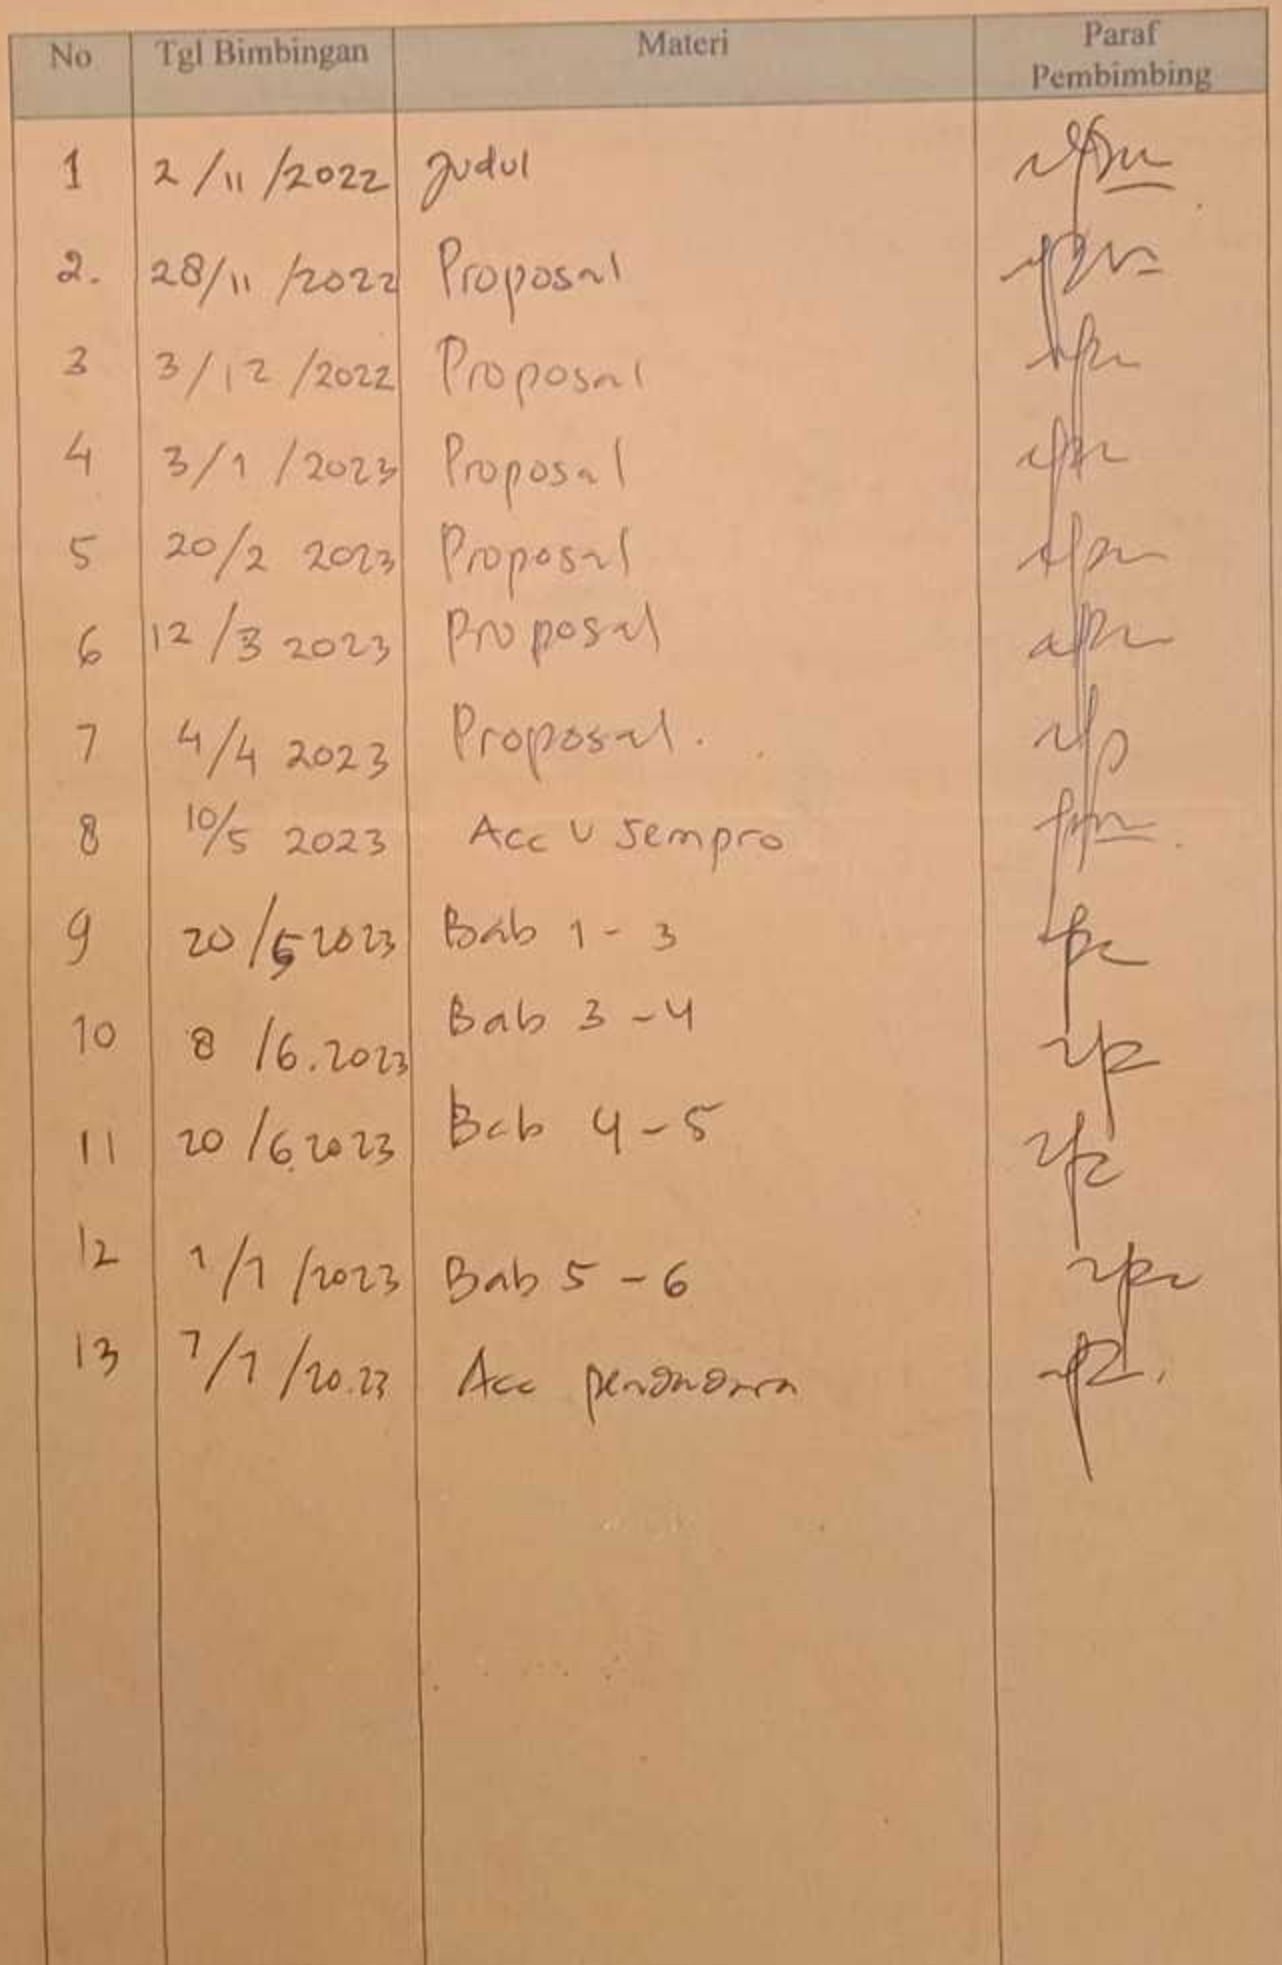 No Tgl Bimbingan Materi Paraf Pembimbing
1 2/11/2022 Judul
2. 28/11/2022 Proposal
3 3/12/2022 Proposal
4 3/1/2023 Proposal
5 20/2 2023 Proposal
6 12/3 2023 Proposal
7 4/4 2023 Proposal.
8 10/5 2023 Acc U Sempro
9 20/5 2023 Bab 1-3
10 8/6.2023 Bab 3-4
11 20/6.2023 Bab 4-5
12 1/7/2023 Bab 5-6
13 7/7/20.23 Acc